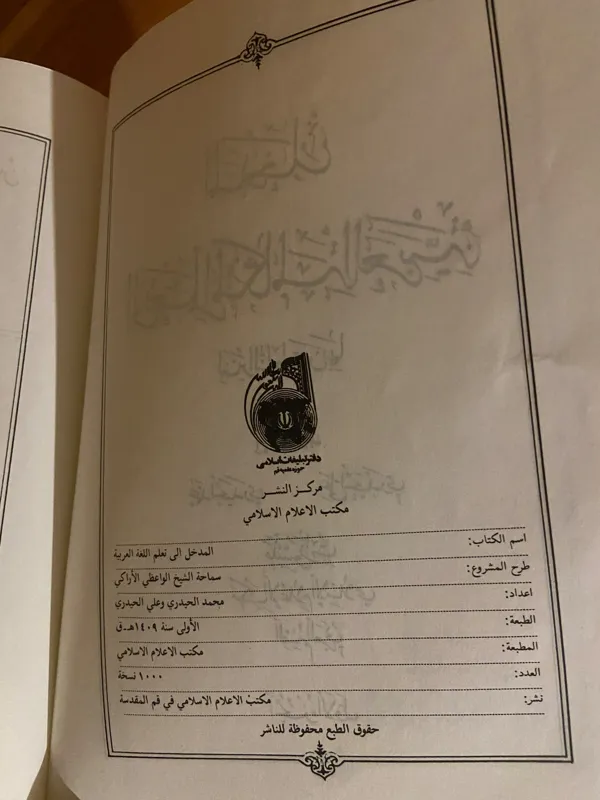 دفتر تبلیغات اسلامی
حوزه علمیه قم
مركز النشر
مكتب الاعلام الاسلامي
اسم الكتاب: المدخل الى تعلم اللغة العربية
طرح المشروع: سماحة الشيخ الواعظي الأراكي
اعداد: محمد الحيدري وعلي الحيدري
الطبعة: الأولى سنة ١٤٠٩هـ.ق
المطبعة: مكتب الاعلام الاسلامي
العدد: ١٠٠٠ نسخة
نشر: مكتبُ الاعلام الاسلامي في قم المقدسة
حقوق الطبع محفوظة للناشر